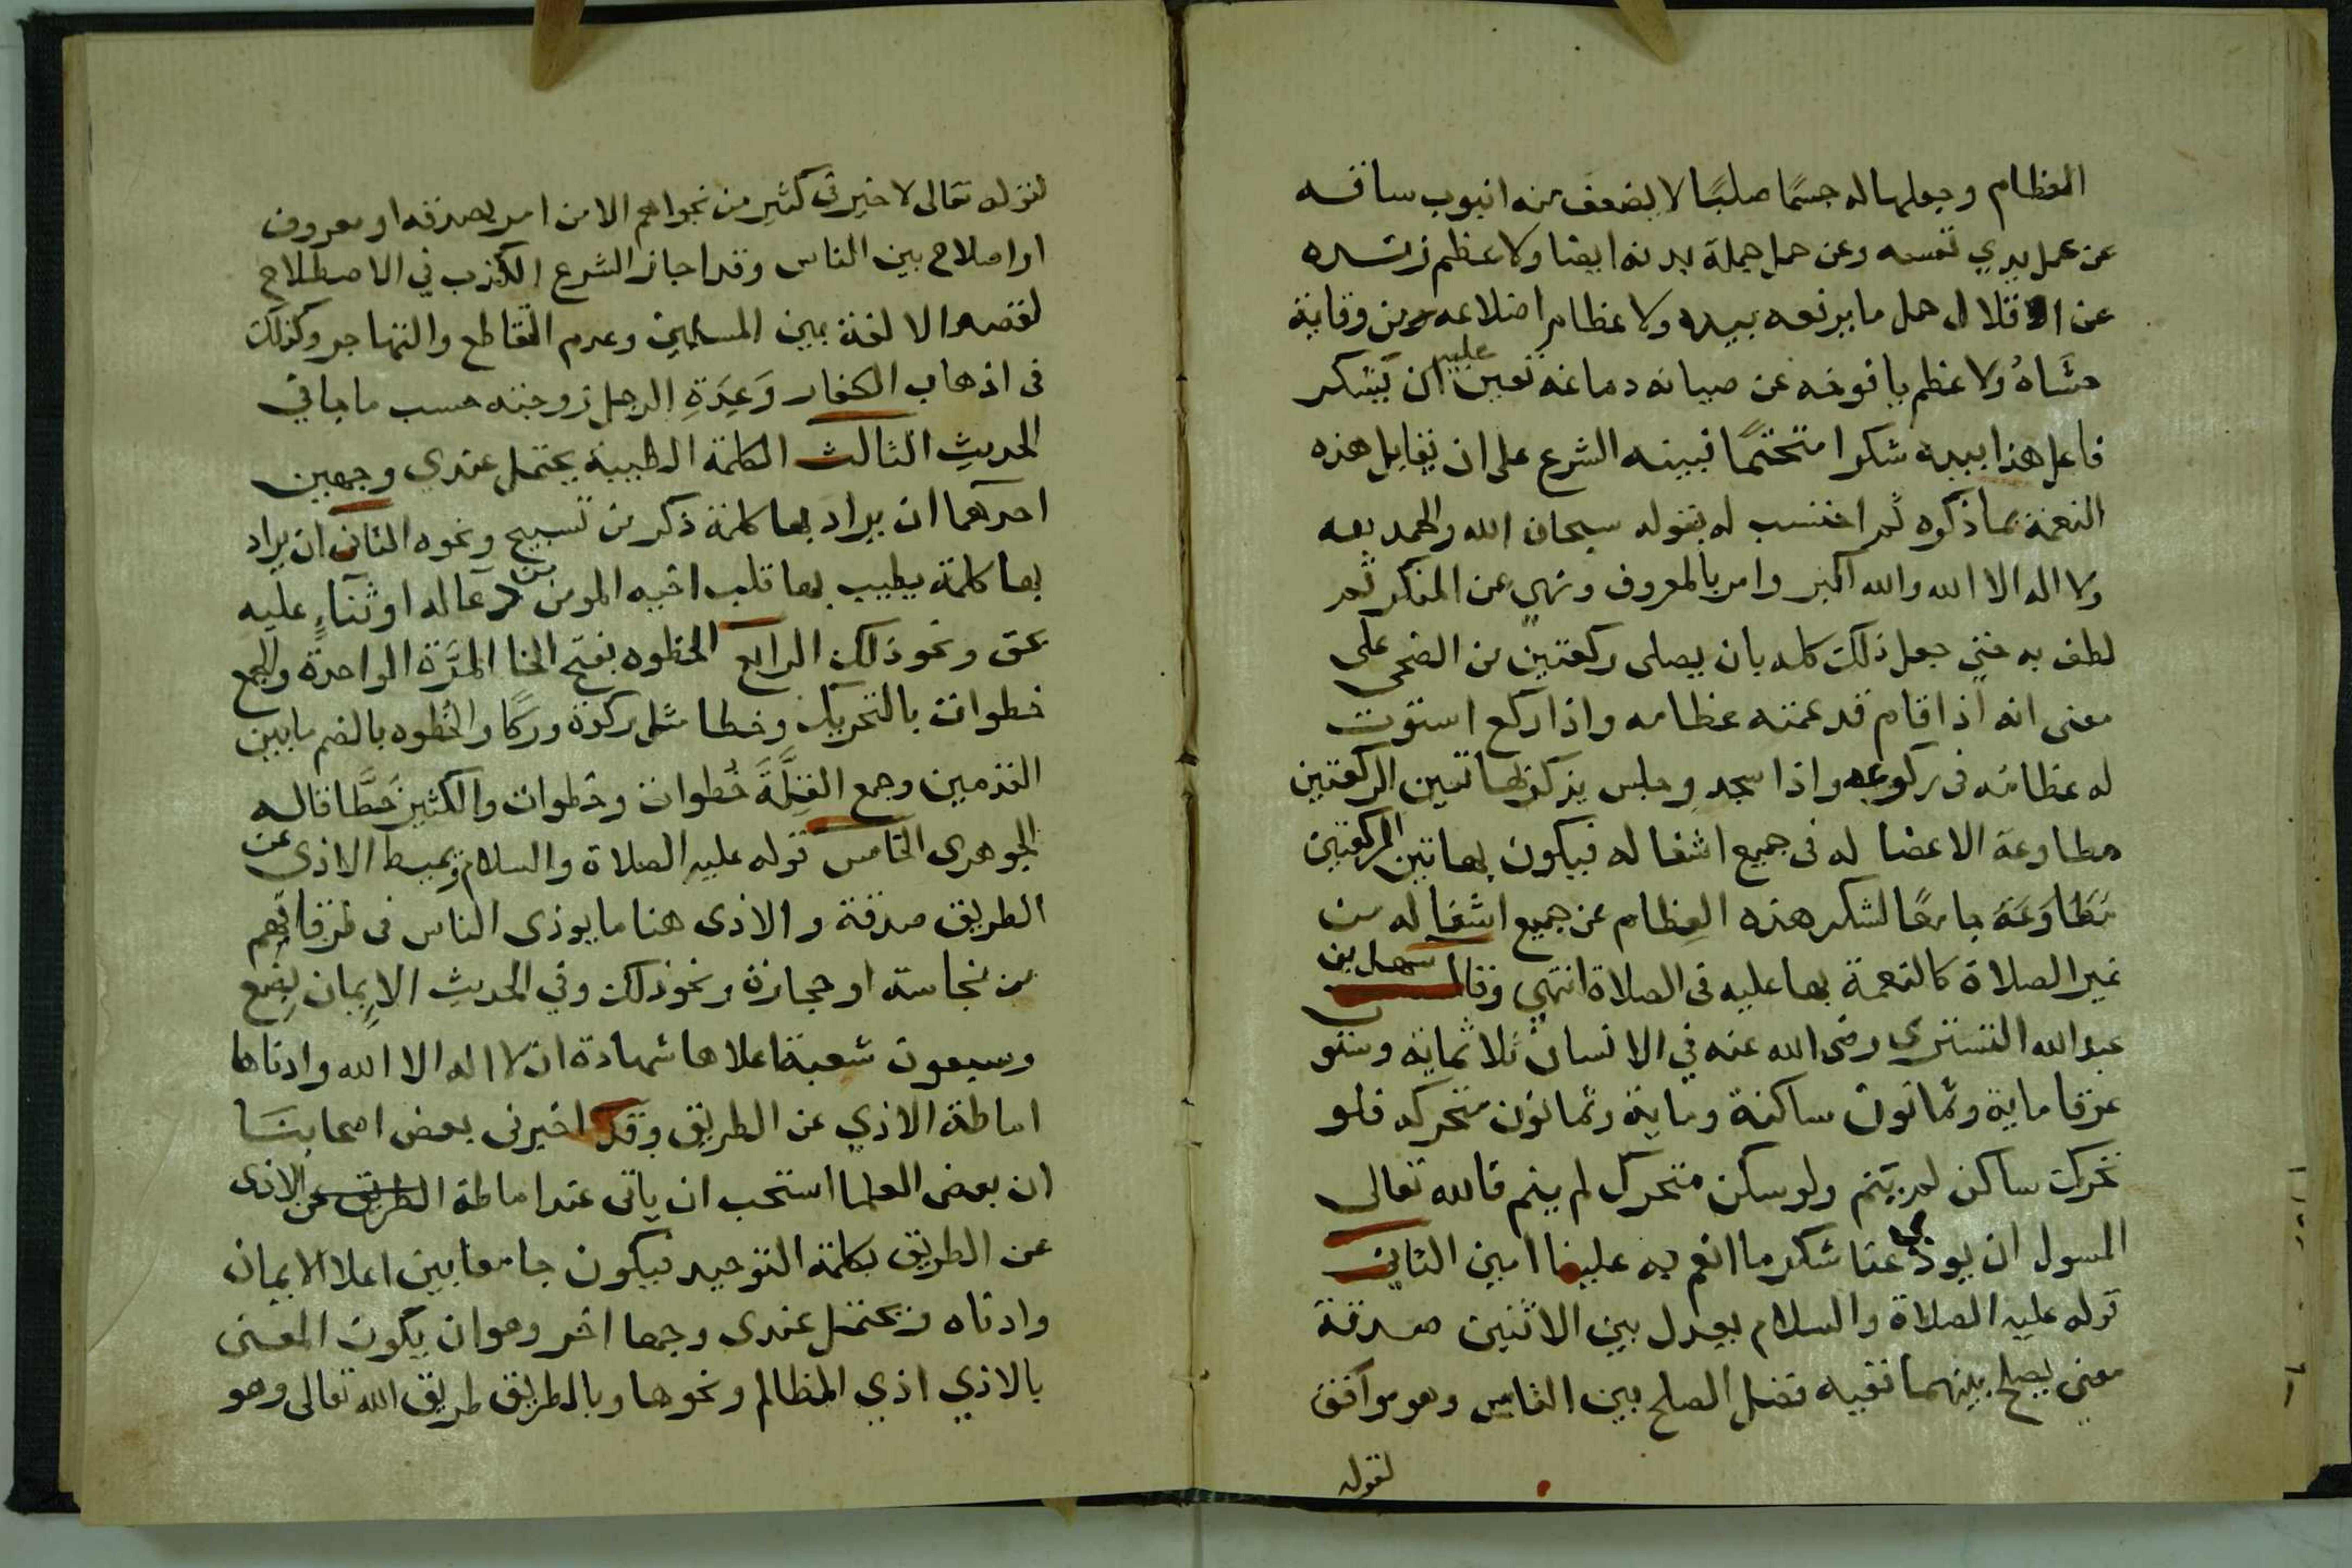 العظام وجعلها له جسمًا صلبًا لا يضعف منه انبوب ساقه
عن عمل يدي نفسه وعن حمل جملة بدنه ايضا ولا عظم زنده
عن الاقلال حمل ما يرفعه بيده ولا عظام اضلاعه من وقاية
حشاهُ ولا عظم يافوخه عن صيانه دماغه تعين عليه ان يشكر
فاعل هذا بيده شكرا متحتمًا فبينه الشرع على ان يقابل هذه
النعمة بما ذكره ثم احتسب له بقوله سبحان الله والحمد لله
ولا اله الا الله والله اكبر وامر بالمعروف ونهي عن المنكر ثم
لطف به حتي جعل ذلك كله بان يصلى ركعتين من الضحى على
معنى انه اذا قام قد عمته عظامه واذا ركع استوت
له عظامه فى ركوعه واذا سجد وجلس يذكر بهاتين الركعتين
مطاوعة الاعضا له فى جميع اشغاله فيكون بهاتين الركعتين
مَطَاوَعَة جامعًا لشكر هذه العظام عن جميع اشغاله من
غير الصلاة كالنعمة بها عليه فى الصلاة انتهي وقال سهل بن
عبد الله التستري رضى الله عنه في الانسان ثلاثماية وستو
عرقا ماية وثمانون ساكنة وماية وثمانون متحركه فلو
تحرك ساكن لم ينم ولو سكن متحرك لم ينم فالله تعالى
المسول ان يودى عنا شكر ما انعم به علينا امين الثاني
قوله عليه الصلاة والسلام يعدل بين الاثنين صدقة
معنى يصلح بينهما ففيه فضل الصلح بين الناس وهو موافق
لقوله
لقوله تعالى لا خير فى كثير من نجواهم الا من امر بصدقه او معروف
او اصلاح بين الناس وقد اجاز الشرع الكذب في الاصطلاح
لقصد الالفة بين المسلمين وعدم التقاطع والتهاجر وكذلك
فى اذهاب الكفار وَعِدَةِ الرجل زوجته حسب ما جا في
الحديث الثالث الكلمة الطيبة يحتمل عندي وجهين
احدهما ان يراد بها كلمة ذكر من تسبيح ونحوه الثانى ان يراد
بها كلمة يطيب بها قلب اخيه المومن من دعا له او ثناءٍ عليه
بحق ونحو ذلك الرابع الخطوه بفتح الخا المرَّة الواحدة والجمع
خطوات بالتحريك وخطا مثل ركوة وركا والخُطوه بالضم ما بين
القدمين وجمع القلَّةَ خُطوات وخطوات والكثير خطَّا قاله
الجوهرى الخامس قوله عليه الصلاة والسلام وتميط الاذى عن
الطريق صدقة والاذى هنا ما يوذى الناس فى طرقاتهم
من نجاسة او حجارة ونحو ذلك وفي الحديث الايمان بضع
وسبعون شعبة اعلاها شهادة ان لا اله الا الله وادناها
اماطة الاذي عن الطريق وقد اخبرنى بعض اصحابنا
ان بعض العلما استحب ان ياتى عند اماطة الطريق عن الاذى
عن الطريق بكلمة التوحيد فيكون جامعا بين اعلا الايمان
وادناه ويحتمل عندى وجها اخر وهو ان يكون المعنى
بالاذي اذي المظالم ونحوها وبالطريق طريق الله تعالى وهو